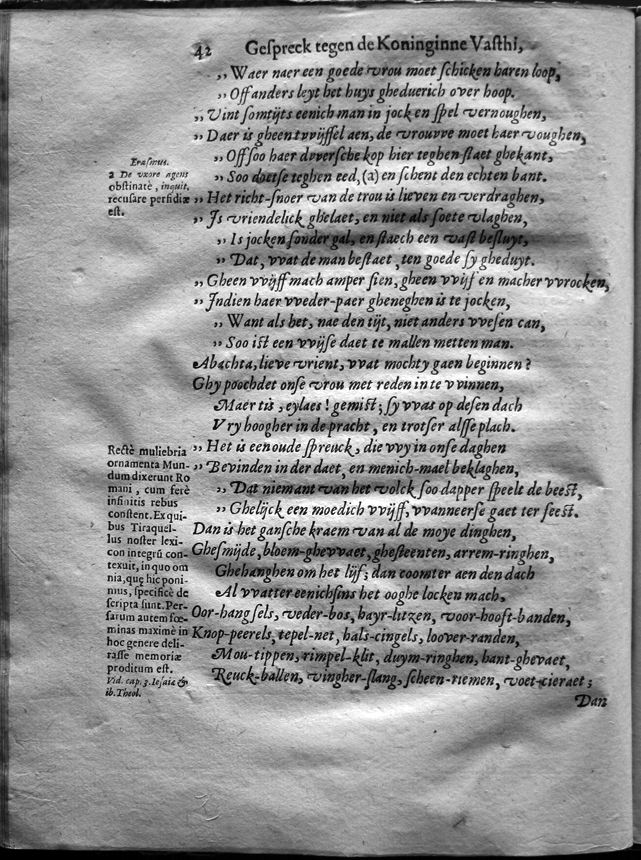 42 Gespreck tegen de Koninginne Vasthi,
„ Waer naer een goede vrou moet schicken haren loop,
„ Off anders leyt het huys gheduerich over hoop.
„ Vint somtijts eenich man in jock en spel vernoughen,
„ Daer is gheen tvvijffel aen, de vrouvve moet haer voughen,
„ Off soo haer dvversche kop hier teghen staet ghekant,
„ Soo doetse teghen eed, (a) en schent den echten bant.
„ Het richt-snoer van de trou is lieven en verdraghen,
„ Is vriendelick ghelaet, en niet als soete vlaghen,
„ Is jocken sonder gal, en staech een vast besluyt,
„ Dat, vvat de man bestaet, ten goede sy gheduyt.
„ Gheen vvijff mach amper sien, gheen vvijf en mach er vvrocken,
„ Indien haer vveder-paer gheneghen is te jocken,
„ Want als het, nae den tijt, niet anders vvesen can,
„ Soo ist een vvijse daet te mallen metten man.
Abachta, lieve vrient, vvat mochty gaen beginnen?
Ghy poochdet onse vrou met reden in te vvinnen,
Maer tis, eylaes! gemist; sy vvas op desen dach
Vry hoogher in de pracht, en trotser alsse plach.
„ Het is een oude spreuck, die vvy in onse daghen
„ Bevinden in der daet, en menich-mael beklaghen,
„ Dat niemant van het volck soo dapper speelt de beest,
„ Ghelijck een moedich vvijff, vvanneerse gaet ter feest.
Dan is het gansche kraem van al de moye dinghen,
Ghesmijde, bloem-ghevvaet, ghesteenten, arrem-ringhen,
Ghehanghen om het lijf; dan coomter aen den dach
Al vvatter eenichsins het ooghe locken mach,
Oor-hangsels, veder-bos, hayr-litzen, voor-hooft-banden,
Knop-peerels, tepel-net, hals-cingels, loover-randen,
Mou-tippen, rimpel-klit, duym-ringhen, hant-ghevaet,
Reuck-ballen, vingher-slang, scheen-riemen, voet-cieraet;
Dan
Erasmus.
a De vxore agens
obstinatè, inquit,
recusare perfidiæ
est.
Rectè muliebria
ornamenta Mun-
dum dixerunt Ro
mani, cum ferè
infinitis rebus
constent. Ex qui-
bus Tiraquel-
lus noster lexi-
con integrũ con-
texuit, in quo om
nia, quę hic poni-
mus, specificè de
scripta sunt. Per-
sarum autem fœ-
minas maximè in
hoc genere deli-
rasse memoriæ
proditum est.
Vid. cap. 3. Iesaiæ &
ib. Theol.